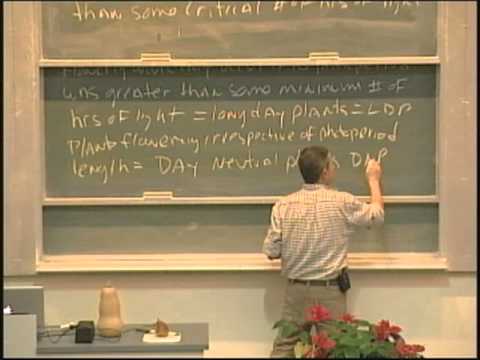 than some critical # of hrs of light
was greater than some minimum # of
hrs of light = long day plants = LDP
Plants flowering irrespective of photoperiod
length = DAY Neutral DNP